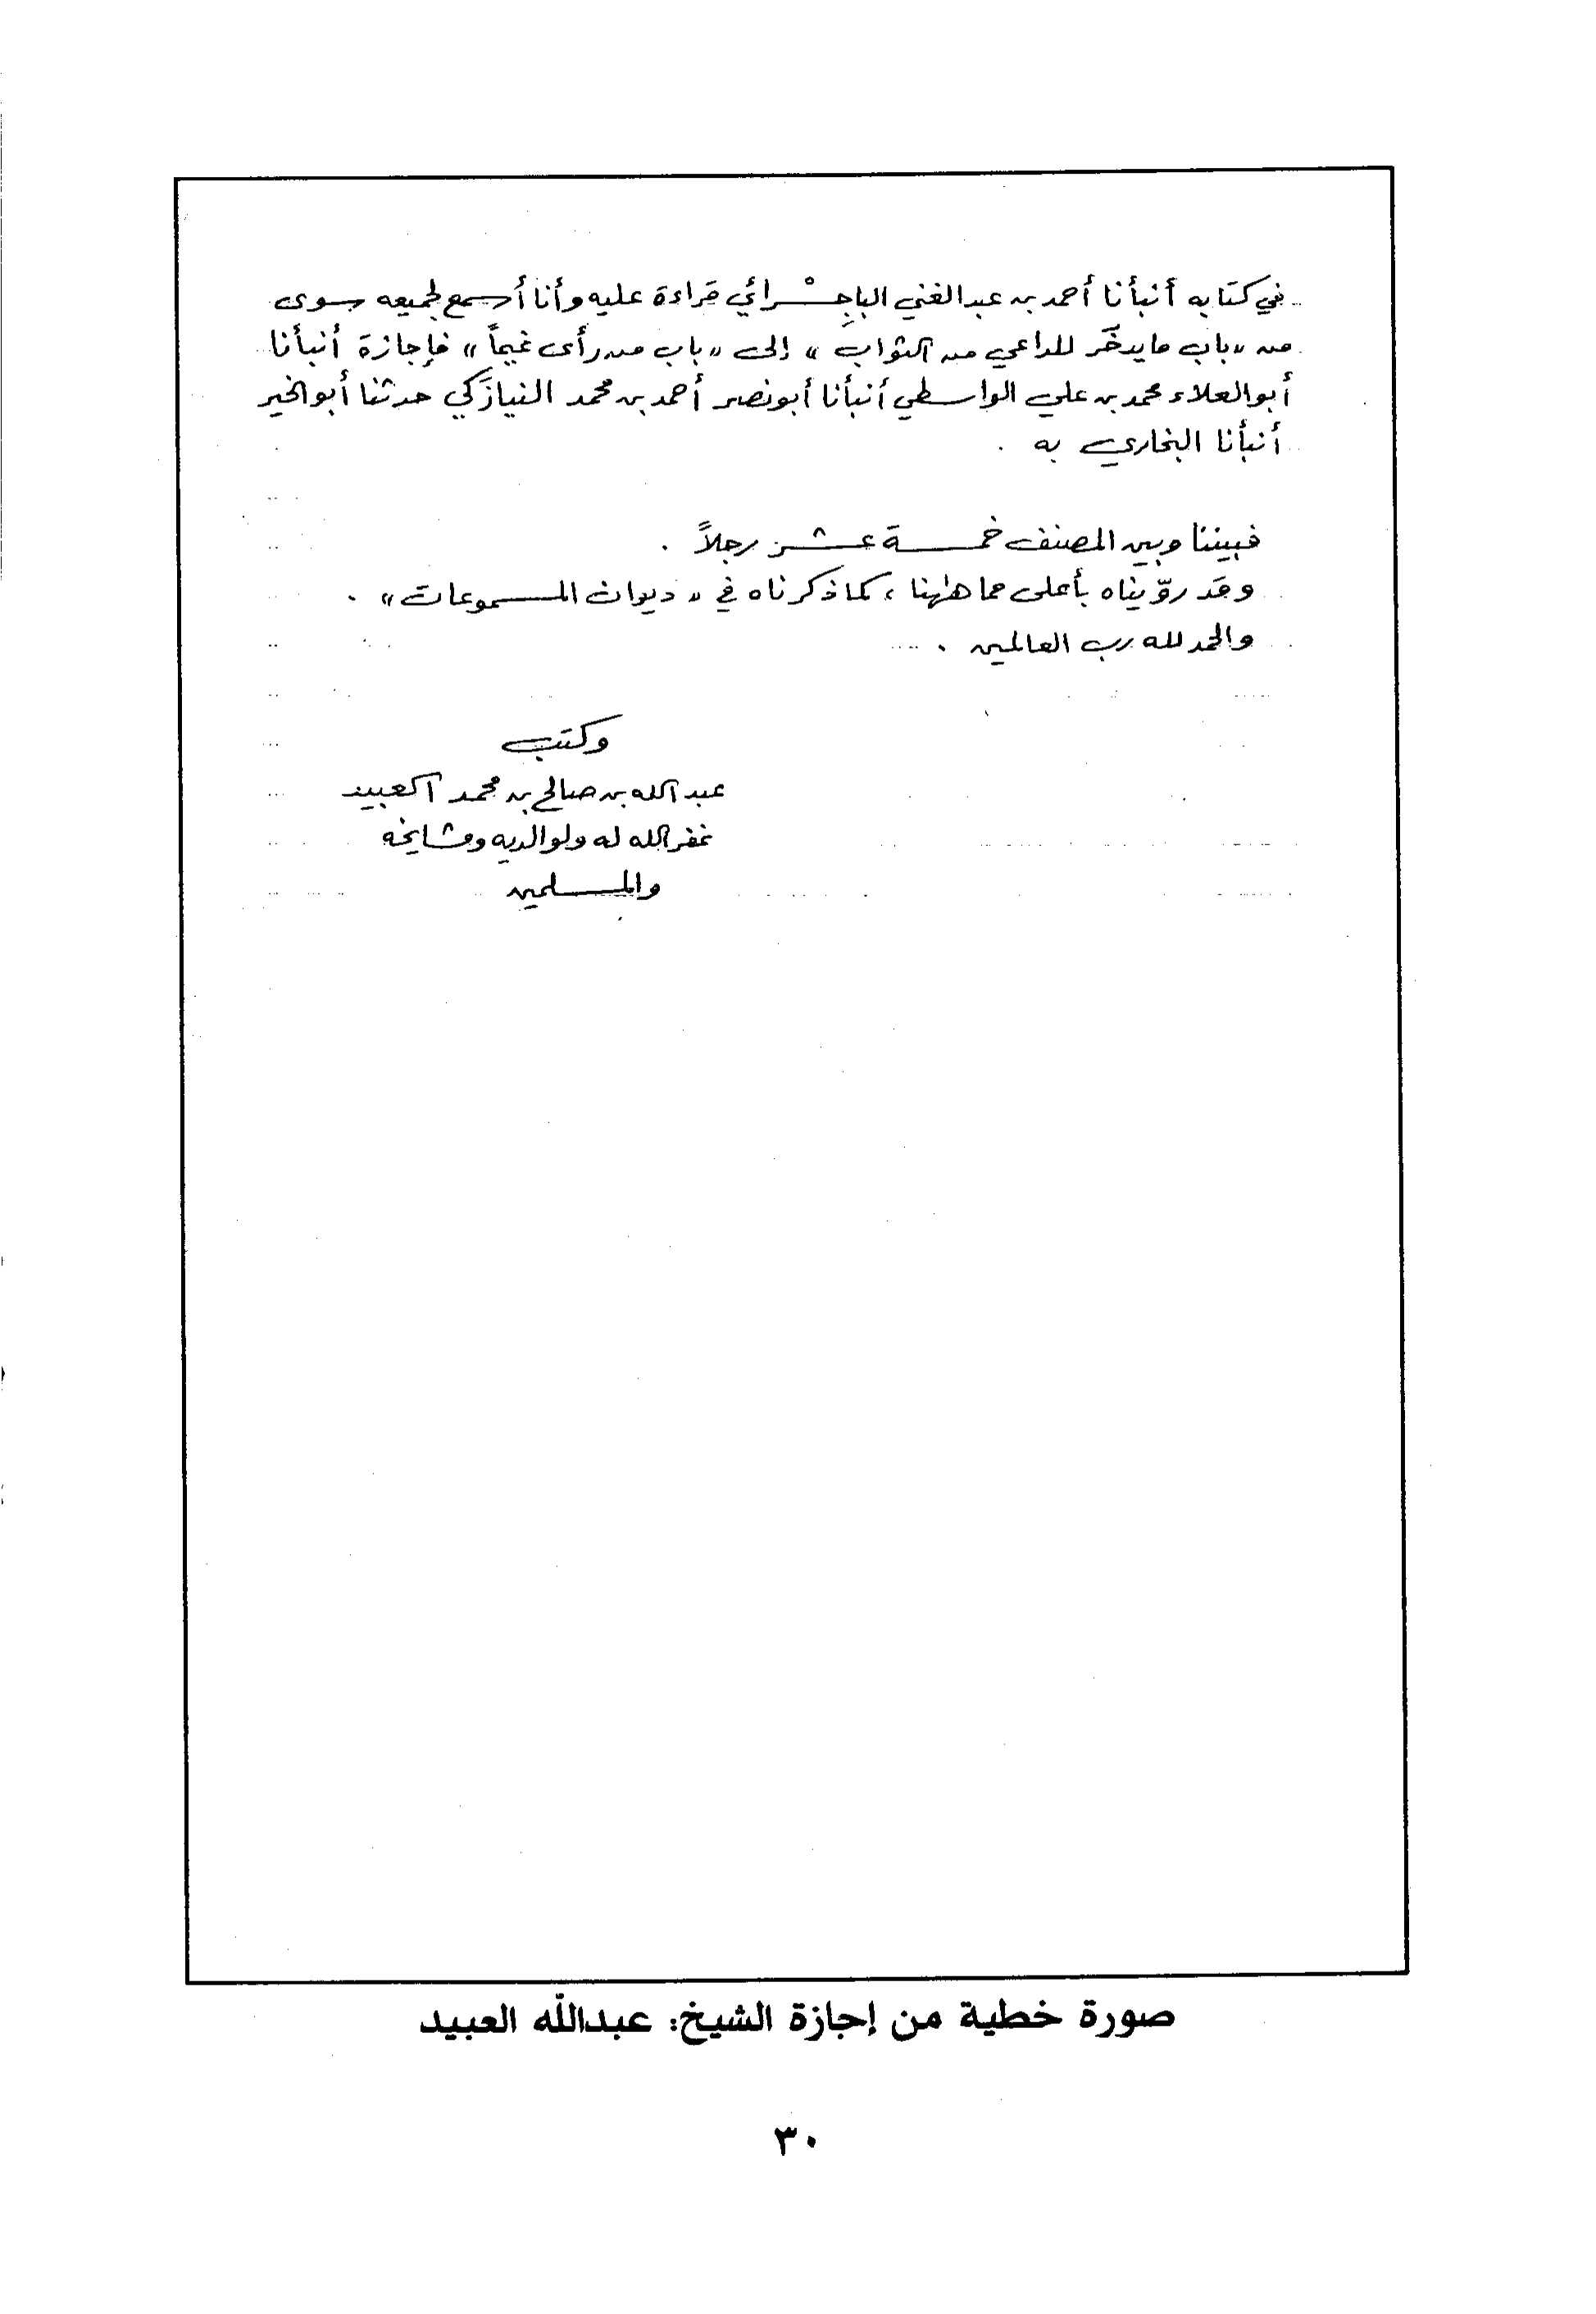 في كتابه أنبأنا أحمد بن عبدالغني الباجِسْرائي قراءة عليه وأنا أسمع لجميعه سوى
من «باب ما يدخّر للداعي من الثواب» إلى «باب من رأى غيماً» فإجازة أنبأنا
أبوالعلاء محمد بن علي الواسطي أنبأنا أبونصر أحمد بن محمد النيازَكي حدثنا أبوالخير
أنبأنا البخاري به .
فبيننا وبين المصنف خمسة عشر رجلاً .
وقد روّيناه بأعلى مما هٰهنا ، كما ذكرناه في «ديوان المسموعات» .
والحمد لله رب العالمين .
وكتب
عبدالله بن صالح بن محمد العبيد
غفر الله له ولوالديه ومشايخه
والمسلمين
صورة خطية من إجازة الشيخ: عبدالله العبيد
٣٠